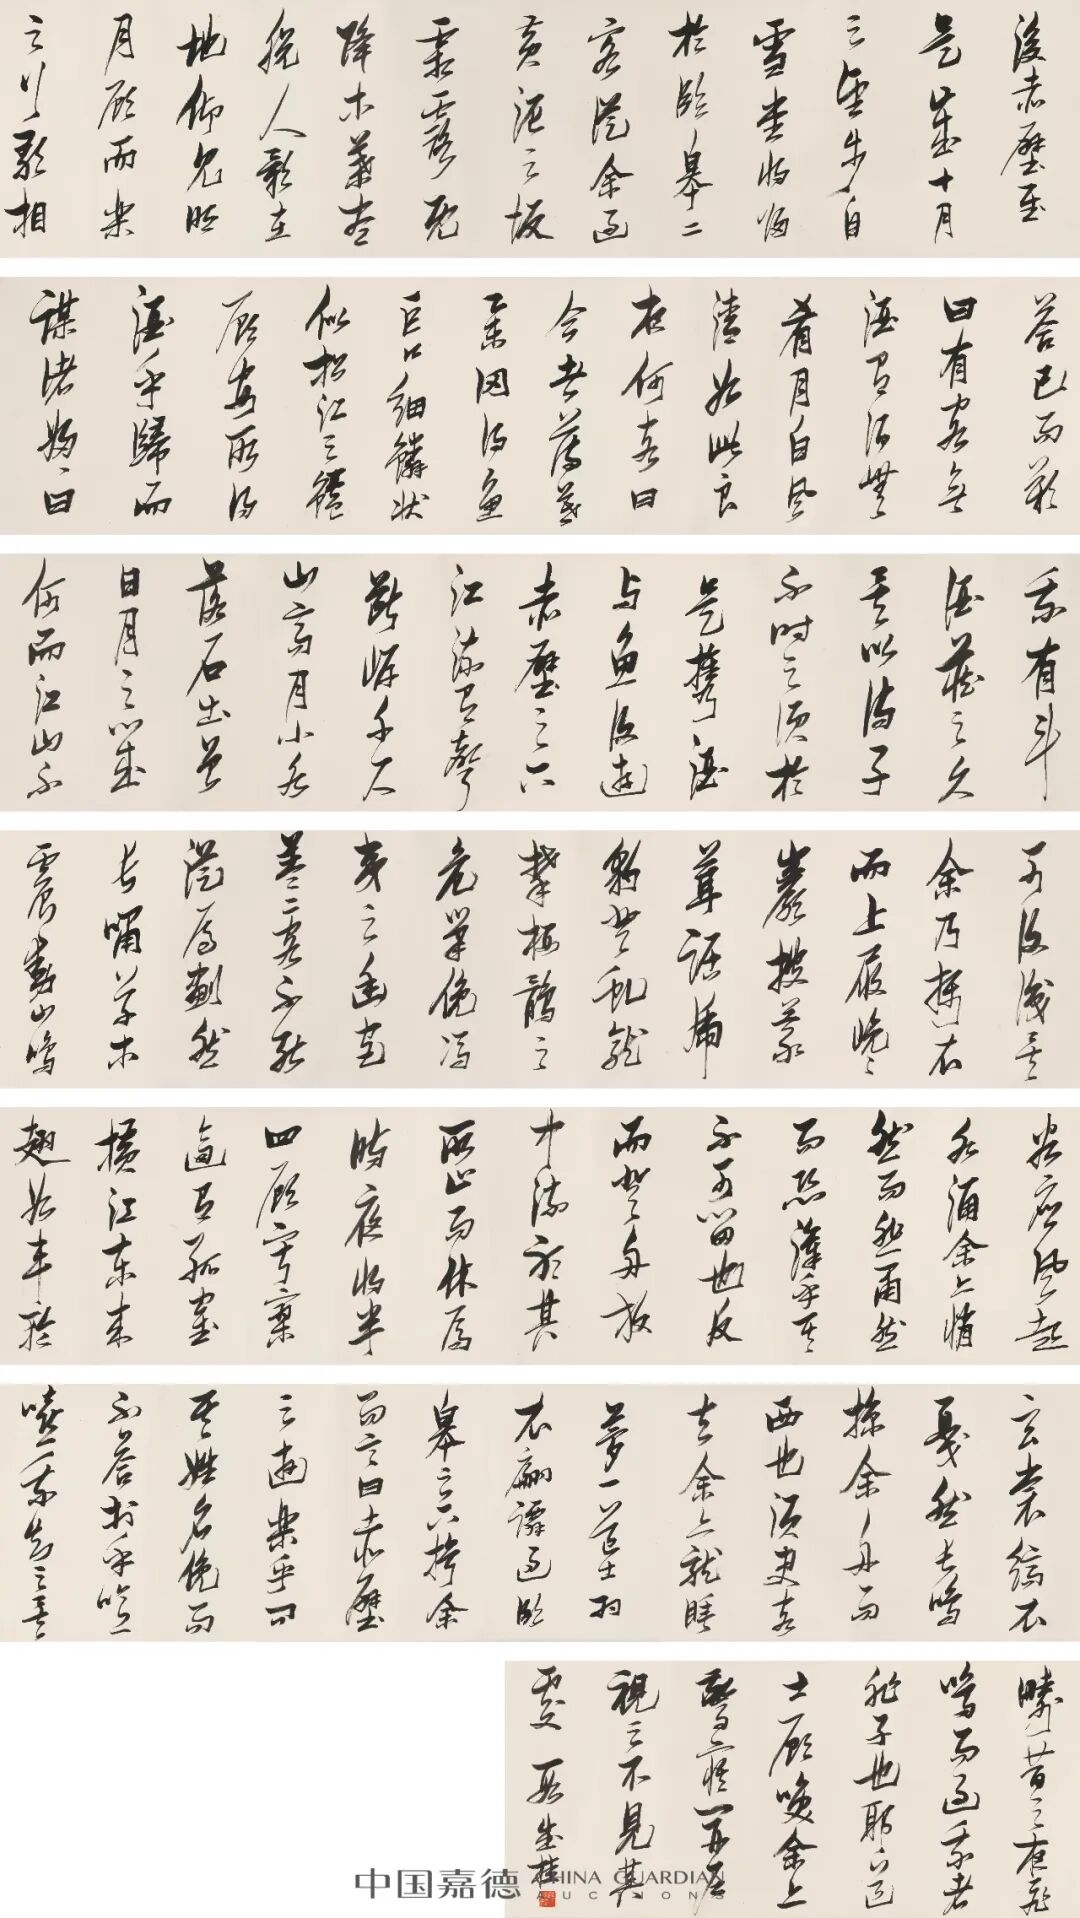 後赤壁賦
是歲十月
之望步自
雪堂將歸
於臨皋二
客從余過
黃泥之坂
霜露既
降木葉盡
脫人影在
地仰見明
月顧而樂
之行歌相
答已而歎
曰有客無
酒有酒無
肴月白風
清如此良
夜何客曰
今者薄暮
舉网得魚
巨口細鱗狀
似松江之鱸
顧安所得
酒乎歸而
謀諸婦〻曰
我有斗
酒藏之久
矣以待子
不時之須於
是攜酒
與魚復遊
赤壁之下
江流有聲
斷岸千尺
山高月小水
落石出曾
日月之幾
何而江山不
可復識矣
余乃攝衣
而上履巉〻
巖披蒙
茸踞虎
豹登虬龍
攀栖鶻之
危巢俛馮
夷之幽宮
蓋二客不能
從焉劃然
長嘯草木
震動山鳴
谷應風起
水涌余亦悄
然而悲肅然
而恐凜乎其
不可留也反
而登舟放
中流聽其
所止而休焉
時夜將半
四顧寂寥
適有孤鶴
橫江東來
翅如車輪
玄裳縞衣
戛然長鳴
掠余舟而
西也須臾客
去余亦就睡
夢一道士羽
衣翩躚過臨
皋之下揖余
而言曰赤壁
之遊樂乎問
其姓名俛而
不答於乎噫
嘻我知之矣
疇昔之夜飛
鳴而過我者
非子也耶道
士顧笑余亦
驚寤開戶
視之不見其
處 段成桂
中国嘉德 CHINA GUARDIAN
AUCTIONS